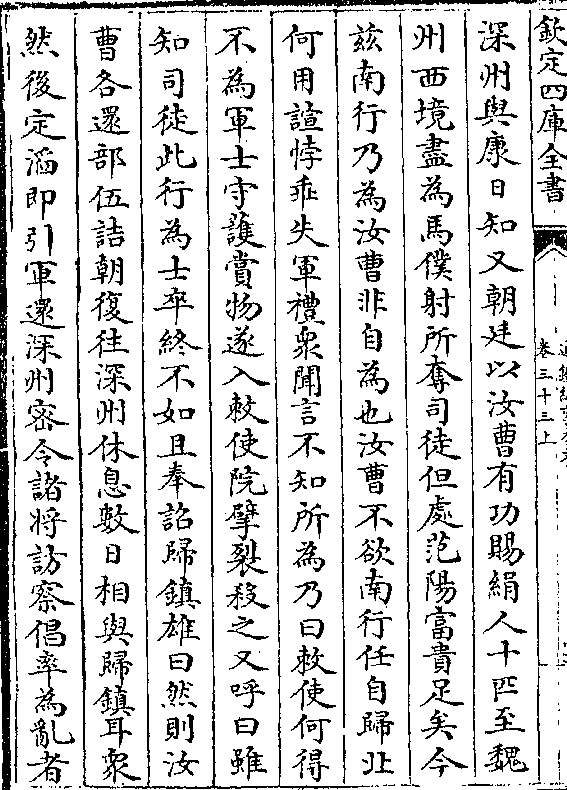 欽定四庫全書
卷三十三上
深州與康日知又朝廷以汝曹有功賜絹人十匹至魏
州西境盡為馬僕射所奪司徒但處范陽富貴足矣今
兹南行乃為汝曹非自為也汝曹不欲南行任自歸北
何用諠悖乖失軍禮衆聞言不知所為乃曰敕使何得
不為軍士守護賞物遂入敕使院擘裂殺之又呼曰雖
知司徒此行為士卒終不如且奉詔歸鎮雄曰然則汝
曹各還部伍詰朝復往深州休息數日相與歸鎮耳衆
然後定滔即引軍還深州密令諸將訪察倡率為亂者